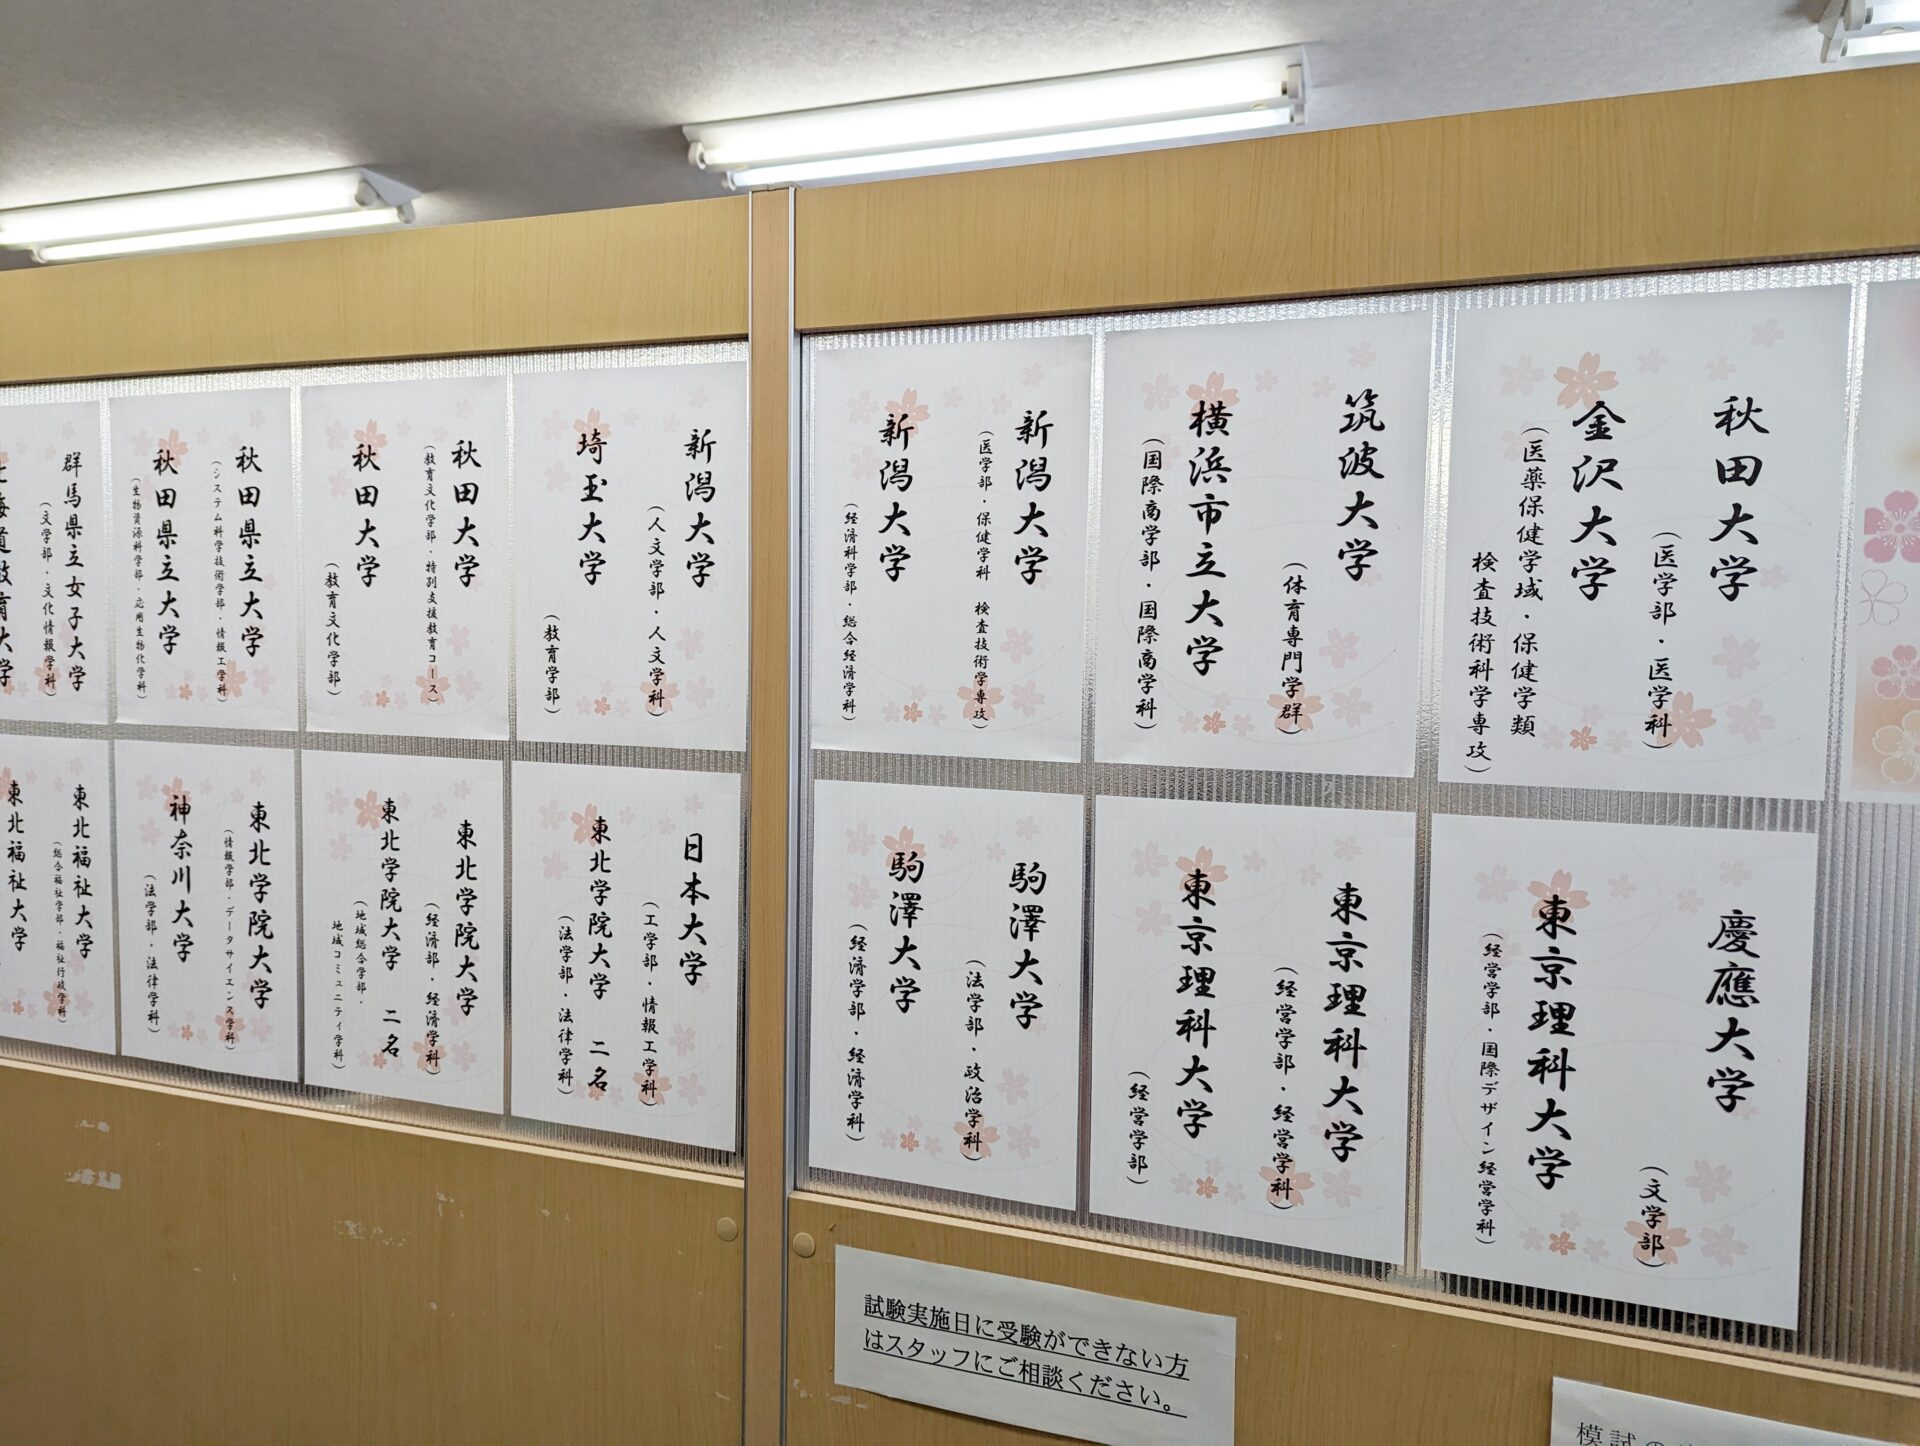 秋田大学
(医学部・医学科)
金沢大学
(医薬保健学域・保健学類
検査技術科学専攻)
筑波大学
(体育専門学群)
横浜市立大学
(国際商学部・国際商学科)
新潟大学
(医学部・保健学科 検査技術学専攻)
新潟大学
(経済科学部・総合経済学科)
新潟大学
(人文学部・人文学科)
埼玉大学
(教育学部)
秋田大学
(教育文化学部・特別支援教育コース)
秋田大学
(教育文化学部)
秋田県立大学
(システム科学技術学部・情報工学科)
秋田県立大学
(生物資源科学部・応用生物化学科)
群馬県立女子大学
(文学部・文化情報学科)
慶應大学
(文学部)
東京理科大学
(経営学部・国際デザイン経営学科)
東京理科大学
(経営学部・経営学科)
東京理科大学
(経営学部)
駒澤大学
(法学部・政治学科)
駒澤大学
(経済学部・経済学科)
日本大学
(工学部・情報工学科)
東北学院大学 二名
(法学部・法律学科)
東北学院大学
(経済学部・経済学科)
東北学院大学 二名
(地域総合学部・
地域コミュニティ学科)
東北学院大学
(情報学部・データサイエンス学科)
神奈川大学
(法学部・法律学科)
東北福祉大学
(総合福祉学部・福祉行政学科)
東北福祉大学
試験実施日に受験ができない方
はスタッフにご相談ください。